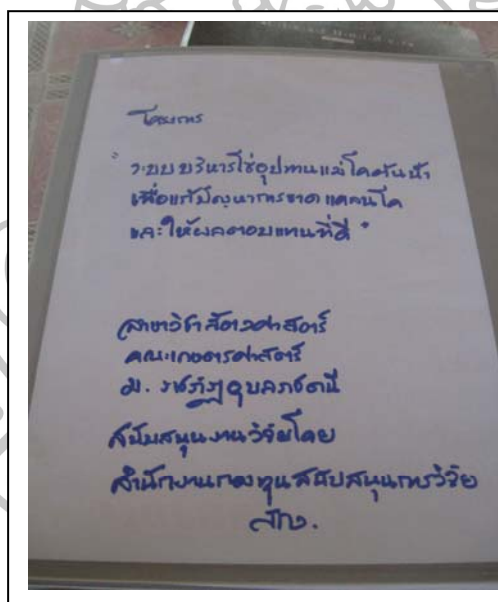 โครงการ
" ระบบบริหารโซ่อุปทานแม่โคต้นน้ำ
เพื่อแก้ปัญหาการขาดแคลนโค
และให้ผลตอบแทนที่ดี "
สาขาวิชาสัตวศาสตร์
คณะเกษตรศาสตร์
ม. ราชภัฏอุบลราชธานี
สนับสนุนงานวิจัยโดย
สำนักงานกองทุนสนับสนุนการวิจัย
สกว.